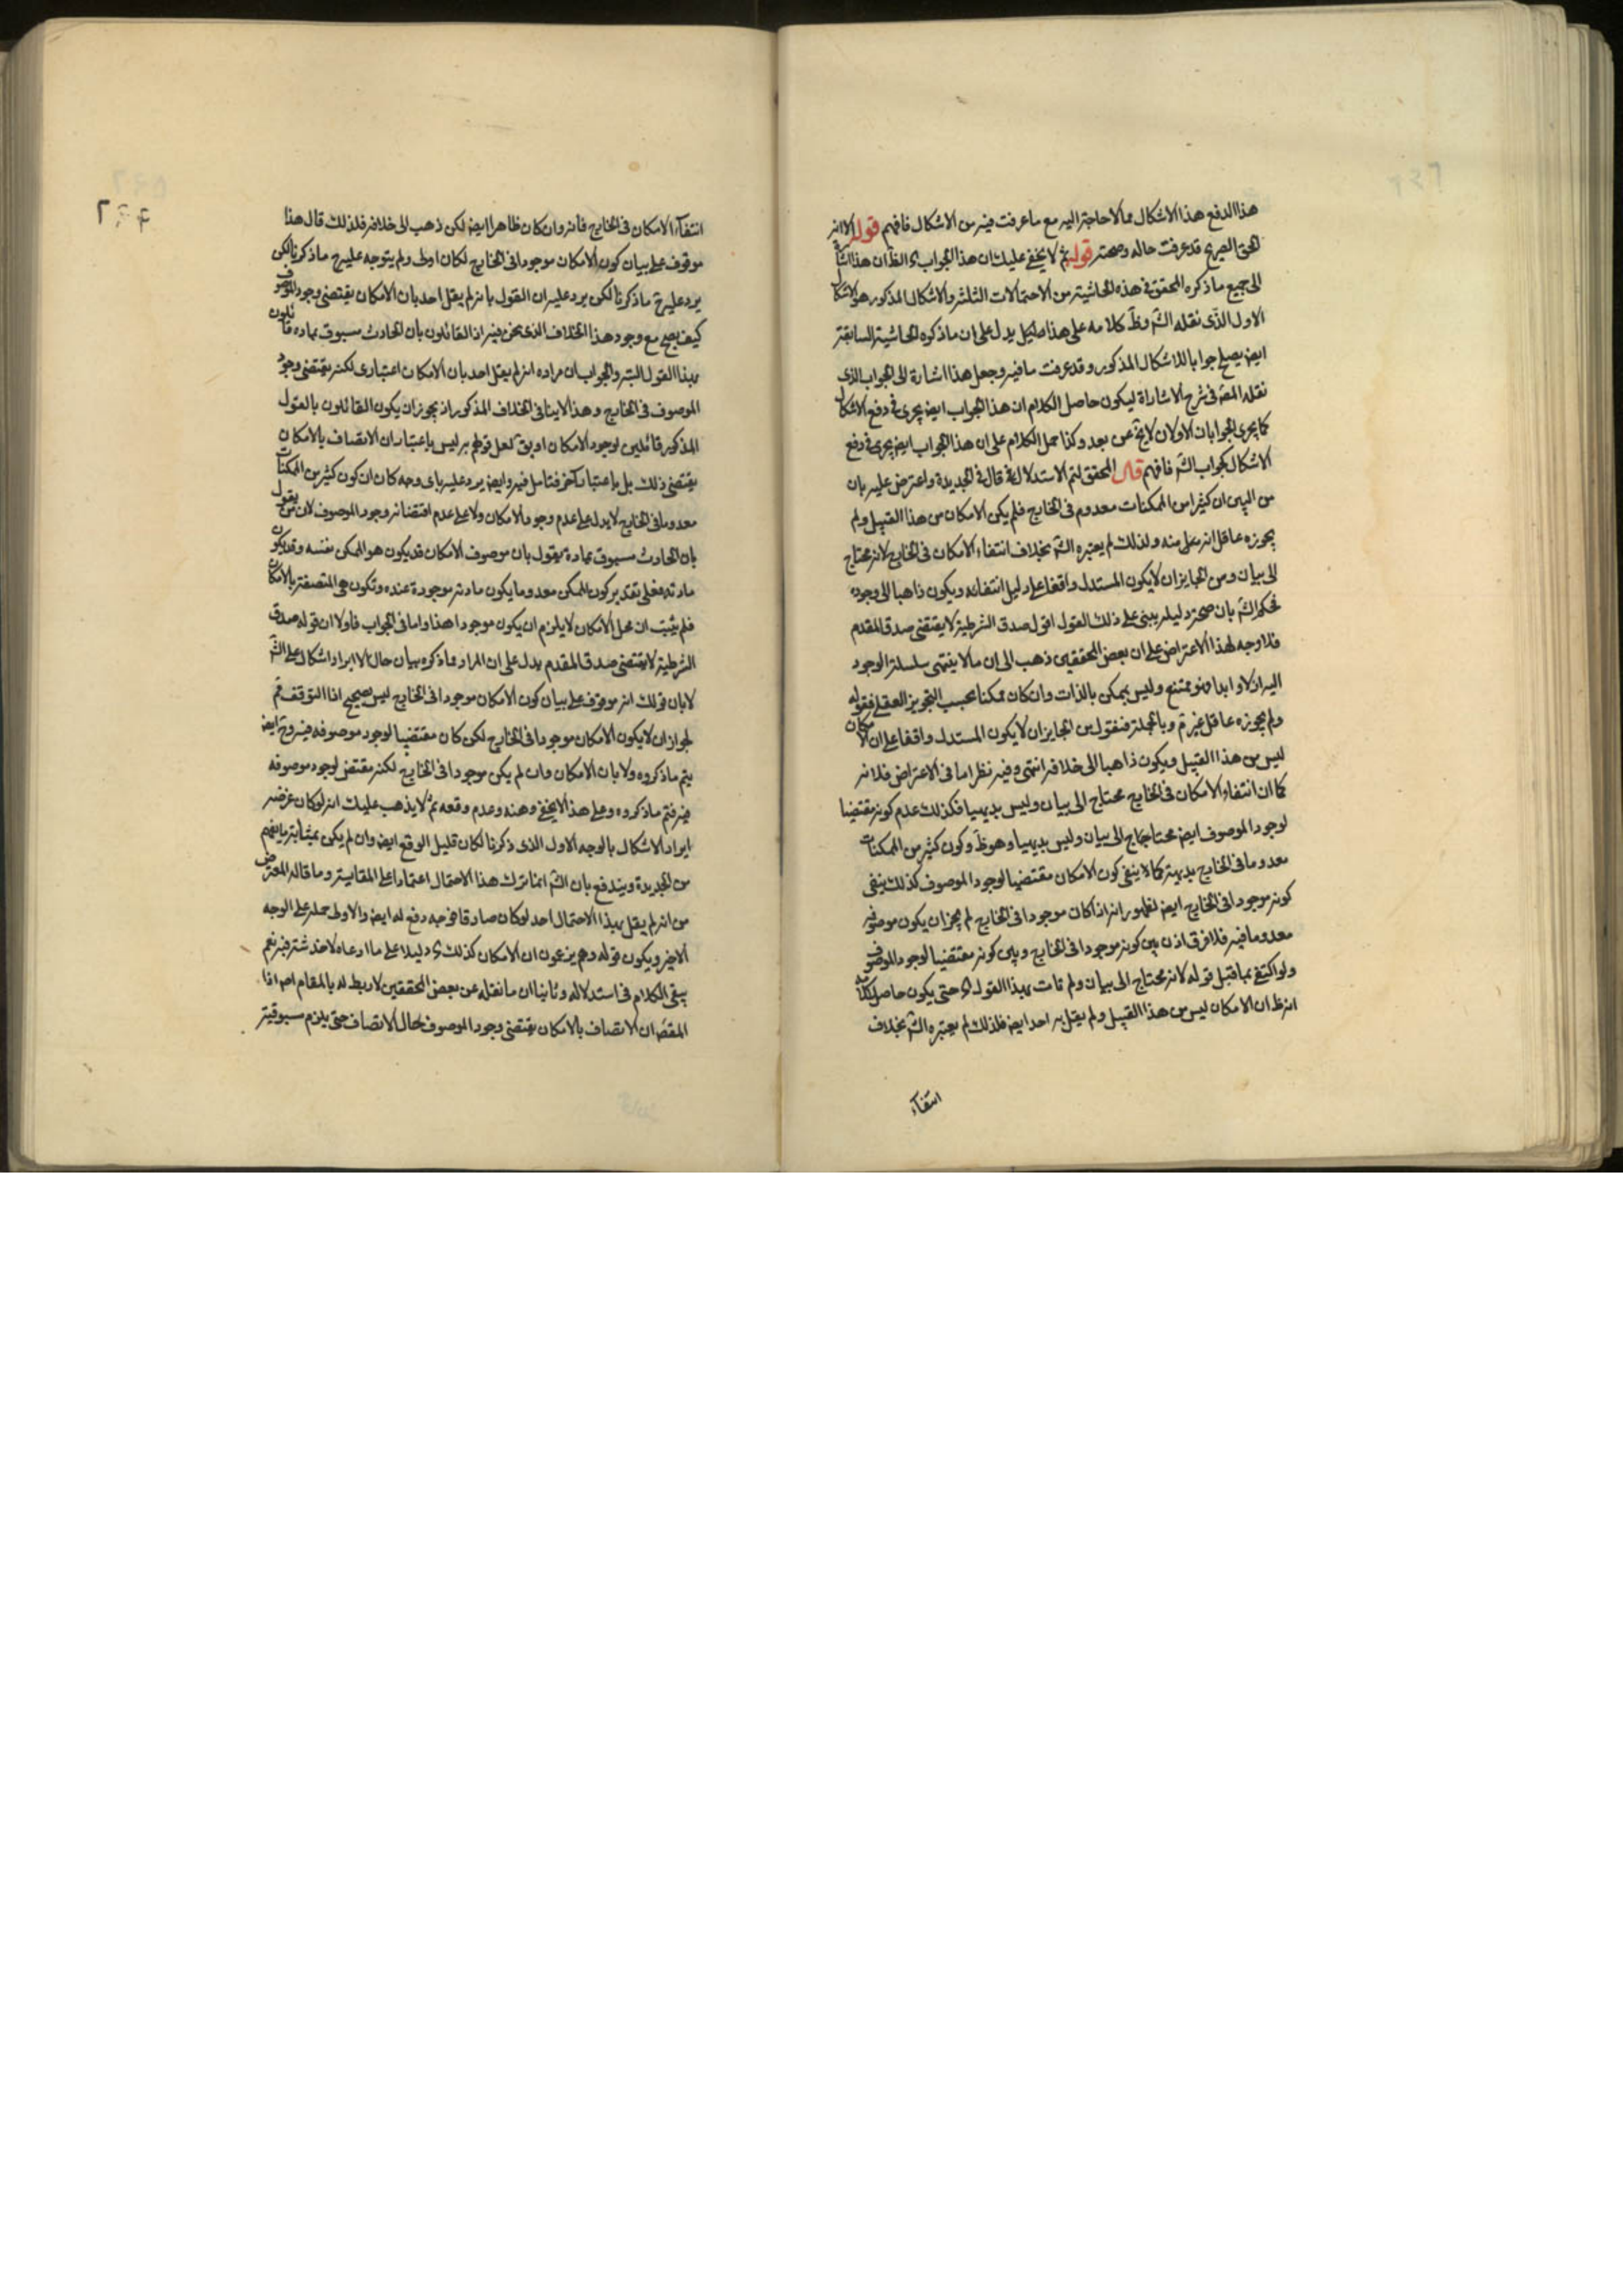 هذا الدفع هذا الاشكال مما لا حاجة اليه مع ما عرفت فيه من الاشكال فافهم قوله الا انه
الحق الصريح قد عرفت حاله وصحته قوله ثم لا يخفى عليك ان هذا الجواب الظ ان هذا اشارة
الى جميع ما ذكره المحقق في هذه الحاشية من الاحتمالات الثلثة والاشكال المذكور هو الاشكال
الاول الذى نقله الش وظ كلامه على هذا يدل على ان ما ذكره الحاشية السابقة
ايض يصلح جوابا للاشكال المذكور وقد عرفت ما فيه وجعل هذا اشارة الى الجواب الذى
نقله المص فى شرح الاشارات ليكون حاصل الكلام ان هذا الجواب ايض يجرى فى دفع الاشكال
كما يجرى الجوابان الاولان لا يخ عن بعد وكذا حمل الكلام على ان هذا الجواب ايض يجرى فى دفع
الاشكال كجواب الش فافهم قال المحقق لتم الاستدلال قال فى الجديدة واعترض عليه بان
من البين ان كثيرا من الممكنات معدوم فى الخارج فلم يكن الامكان من هذا القبيل ولم
يجوزه عاقل ولذلك لم يعتبره الش بخلاف انتفاء الامكان فى الخارج لانه محتاج
الى بيان ومن الجايز ان لا يكون المستدل واقفا على دليل انتفائه ويكون ذاهبا الى وجوده
فحكم الش بان صحة دليله يبنى على ذلك القول اقول صدق الشرطية لا يقتضى صدق المقدم
فلا وجه لهذا الاعتراض على ان بعض المحققين ذهب الى ان ما لا ينتهى سلسلة الوجود
اليه ازلا وابدا فهو ممتنع وليس بممكن بالذات وان كان ممكنا بحسب التجويز العقلى فقوله
ولم يجوزه عاقل غير م وبالجملة فنقول من الجايز ان لا يكون المستدل واقفا على ان الامكان
ليس من هذا القبيل ويكون ذاهبا الى خلافه انتهى وفيه نظر اما فى الاعتراض فلانه
كما ان انتفاء الامكان فى الخارج محتاج الى بيان وليس بديهيا فكذلك عدم كونه مقتضيا
لوجود الموصوف ايض محتاج الى بيان وليس بديهيا وهو ظ وكون كثير من الممكنات
معدوما فى الخارج بديهة كما لا ينفى كون الامكان مقتضيا لوجود الموصوف كذلك ينفى
كونه موجودا فى الخارج ايض لظهور انه اذا كان موجودا فى الخارج لم يجز ان يكون موصوفه
معدوما فيه فلا فرق اذن بين كونه موجودا فى الخارج وبين كونه مقتضيا لوجود الموصوف
ولو اكتفى بما قبل قوله لانه محتاج الى بيان ولم تات بهذا القول حتى يكون حاصل كلامه
انه ظ ان الامكان ليس من هذا القبيل ولم يقل به احد ايض فلذلك لم يعتبره الش بخلاف
انتفاء
انتفاء الامكان فى الخارج فانه وان كان ظاهرا ايض لكن ذهب الى خلافه فلذلك قال هذا
موقوف على بيان كون الامكان موجودا فى الخارج لكان اولى ولم يتوجه عليه ح ما ذكرنا لكن
يرد عليه ح ما ذكرنا لكن يرد عليه ان القول بانه لم يقل احد بان الامكان يقتضى وجود الموصوف
كيف يصح مع وجود هذا الخلاف الذى نحن فيه اذ القائلون بان الحادث مسبوق بمادة قائلون
بهذا القول البتة والجواب ان مراده انه لم يقل احد بان الامكان اعتبارى لكنه يقتضى وجود
الموصوف فى الخارج وهذا لا ينافى الخلاف المذكور اذ يجوز ان يكون القائلون بالقول
المذكور قائلين لوجود الامكان او يق لعل قولهم به ليس باعتبار ان الاتصاف بالامكان
يقتضى ذلك بل باعتبار آخر فتامل فيه وايض يرد عليه باى وجه كان ان كون كثير من الممكنات
معدوما فى الخارج لا يدل على عدم وجود الامكان ولا على عدم اقتضائه وجود الموصوف لان من يقول
بان الحادث مسبوق بمادة يقول بان موصوف الامكان قد يكون هو الممكن نفسه وقد يكون
مادته فعلى تقدير كون الممكن معدوما يكون مادته موجودة عنده وتكون هى المتصفة بالامكان
فلم يثبت ان محل الامكان لا يلزم ان يكون موجودا هذا واما فى الجواب فاولا ان قوله صدق
الشرطية لا يقتضى صدق المقدم يدل على ان المراد مما ذكره بيان حال لا ايراد اشكال على الش
لا بان قولك انه موقوف على بيان كون الامكان موجودا فى الخارج ليس بصحيح اذ التوقف م
لجواز ان لا يكون الامكان موجودا فى الخارج لكن كان مقتضيا لوجود موصوفه فيه وح ايض
يتم ما ذكروه ولا بان الامكان وان لم يكن موجودا فى الخارج لكنه مقتض لوجود موصوفه
فيه فتم ما ذكروه وعلى هذا لا يخفى وهنه وعدم وقعه ثم لا يذهب عليك انه لو كان غرضه
ايراد الاشكال بالوجه الاول الذى ذكرنا لكان قليل الوقع ايض وان لم يكن بمثابة ما يفهم
من الجديدة ويندفع بان الش انما ترك هذا الاحتمال اعتمادا على المقايسة وما قاله المعترض
من انه لم يقل بهذا الاحتمال احد لو كان صادقا فوجه دفع له ايض والاولى حمله على الوجه
الاخير ويكون قوله وهم يزعمون ان الامكان كذلك دليلا على ما ادعاه لا خدشة فيه نعم
يبقى الكلام فى استدلاله وثانيا ان ما نقله عن بعض المحققين لا ربط له بالمقام اصلا اذا
المقص ان الاتصاف بالامكان يقتضى وجود الموصوف بحال الاتصاف حتى يلزم مسبوقية